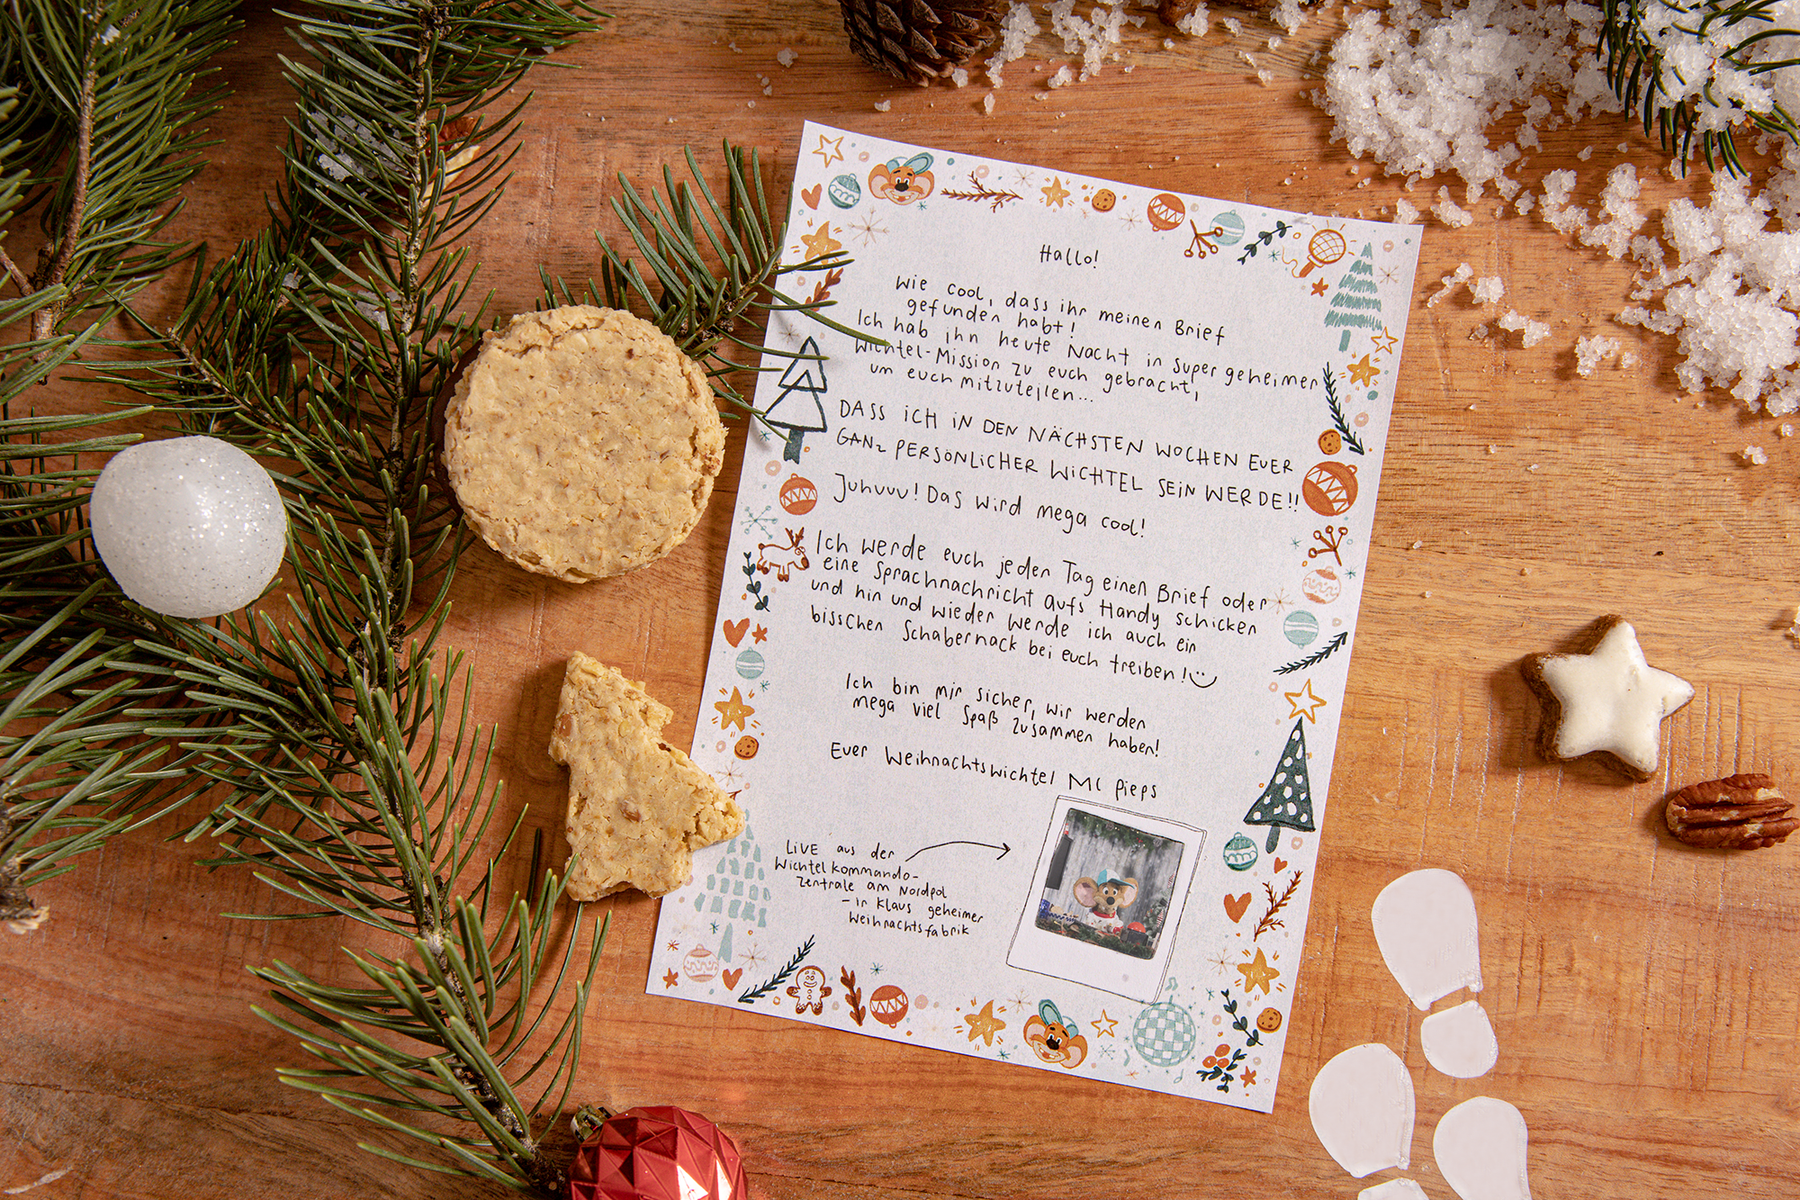 Hallo!
Wie cool, dass ihr meinen Brief
gefunden habt!
Ich hab ihn heute Nacht in super geheimer
Wichtel-Mission zu euch gebracht,
um euch mitzuteilen...
DASS ICH IN DEN NÄCHSTEN WOCHEN EUER
GANZ PERSÖNLICHER WICHTEL SEIN WERDE!!
Juhuuu! Das wird mega cool!
Ich werde euch jeden Tag einen Brief oder
eine Sprachnachricht aufs Handy schicken
und hin und wieder werde ich auch ein
bisschen Schabernack bei euch treiben!
Ich bin mir sicher, wir werden
mega viel Spaß zusammen haben!
Euer Weihnachtswichtel MC Pieps
LIVE aus der
Wichtelkommando-
zentrale am Nordpol
- in Klaus geheimer
Weihnachtsfabrik